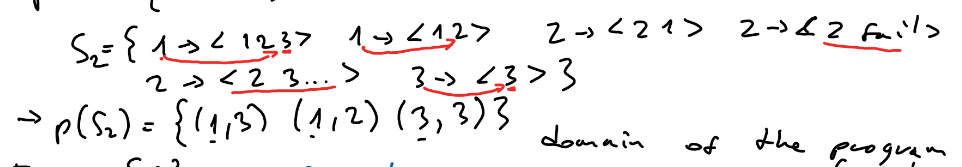 S₂ = { 1 → < 1 2 3 > 1 → < 1 2 > 2 → < 2 1 > 2 → < 2 fail >
2 → < 2 3 ... > 3 → < 3 > }
→ p(S₂) = { (1,3) (1,2) (3,3) }
domain of the program